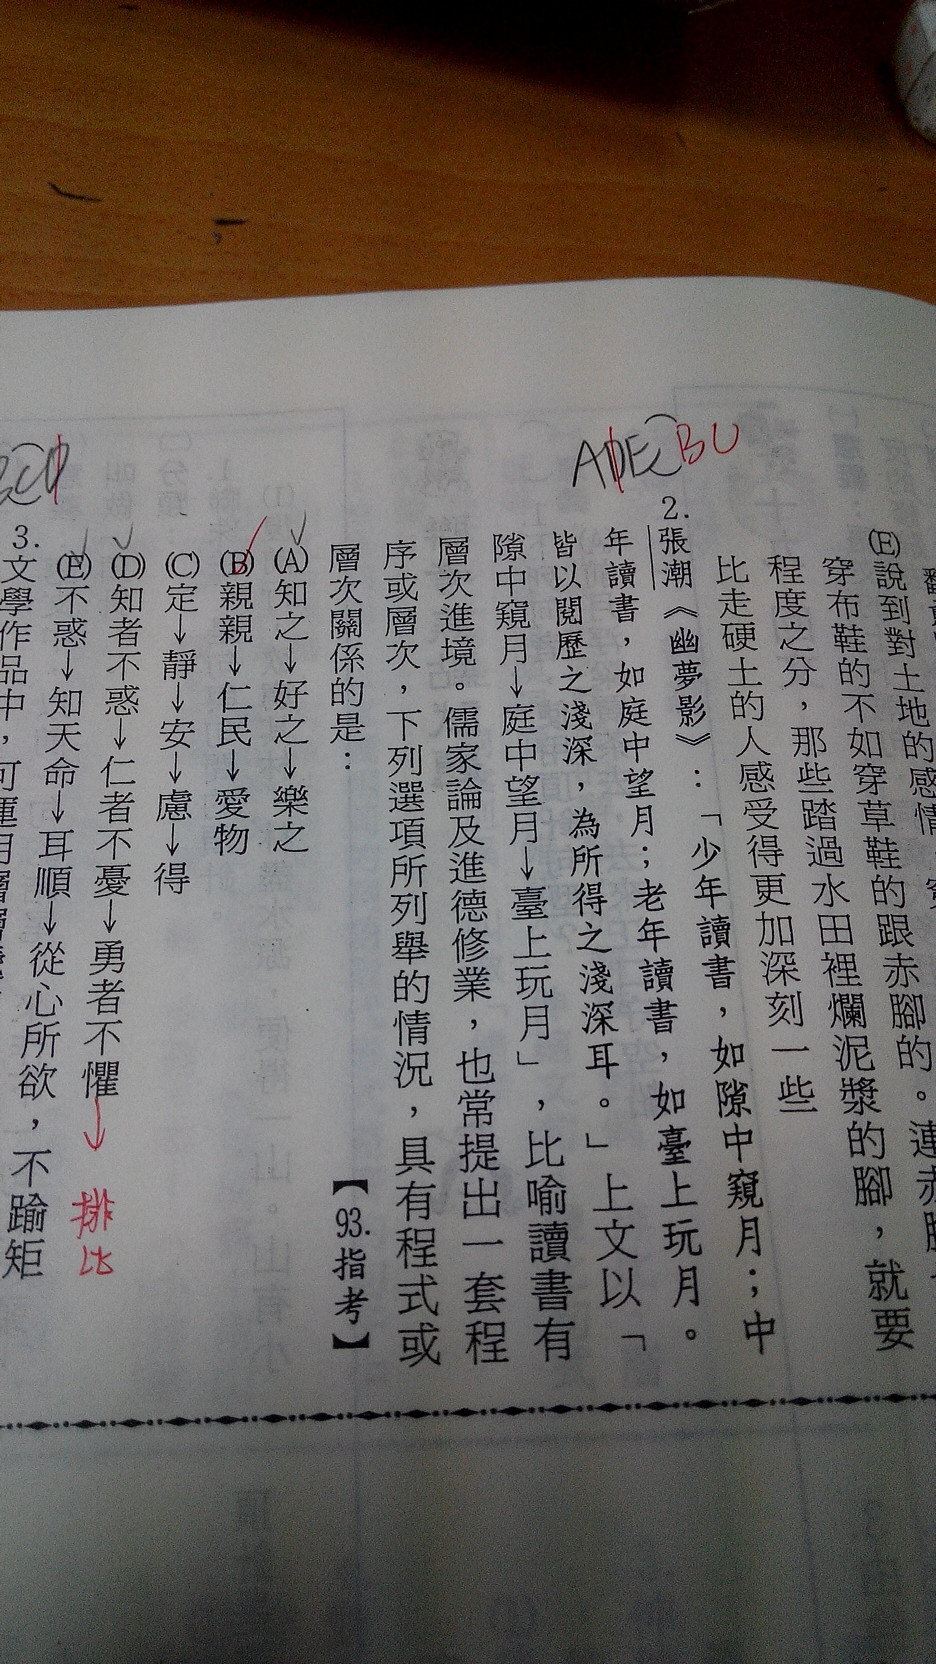 (E)說到對土地的感情，
穿布鞋的不如穿草鞋的跟赤腳的。連赤腳
程度之分，那些踏過水田裡爛泥漿的腳，就要
比走硬土的人感受得更加深刻一些
ADE BC
2.張潮《幽夢影》：「少年讀書，如隙中窺月；中
年讀書，如庭中望月；老年讀書，如臺上玩月。
皆以閱歷之淺深，為所得之淺深耳。」上文以「
隙中窺月→庭中望月→臺上玩月」，比喻讀書有
層次進境。儒家論及進德修業，也常提出一套程
序或層次，下列選項所列舉的情況，具有程式或
層次關係的是：
【93.指考】
(A)知之→好之→樂之
(B)親親→仁民→愛物
(C)定→靜→安→慮→得
(D)知者不惑→仁者不憂→勇者不懼→排比
(E)不惑→知天命→耳順→從心所欲，不踰矩
3.文學作品中，可運用層層